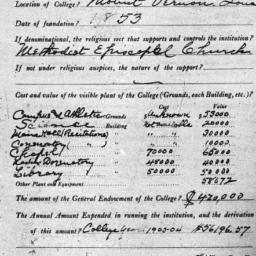 Location of College? Mount Vernon Iowa
Date of foundation? 1853
If denominational, the religious sect that supports and controls the institution?
Methodist Episcopal Church
If not under religious auspices, the nature of the support?
Cost and value of the visible plant of the College (Grounds, each Building, etc.)?
Cost Value
Campus & Athletic Grounds Unknown $ 53000
Science Building 20000
Main Hall (Recitations) " 30000
" ) " 10000
Chapel " ) 70000 65000
Dormitory ) 45000 40000
Library ) 50000 50000
Other Plant and Equipment 58672
The amount of the General Endowment of the College? $420,000
The Annual Amount Expended in running the institution, and the derivation
of this amount? College Year 1903-04 $56196.57